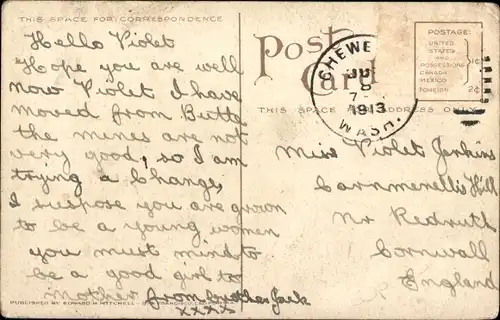 THIS SPACE FOR CORRESPONDENCE
Hello Violet
Hope you are well
now Violet I have
moved from Butte
the mines are not
very good, so I am
trying a Change,
I suspose you are grown
to be a young women
you must mind to
be a good girl to
mother from brother Jack
xxxx
PUBLISHED BY EDWARD H. MITCHELL - SAN FRANCISCO,
Post
Card
THIS SPACE FOR ADDRESS ONLY
CHEWE
JUL
8
7-
1913
WASH.
POSTAGE:
UNITED
STATES
AND
POSSESSIONS
CANADA
MEXICO
1¢
FOREIGN 2¢
Miss Violet Jenkins
Carnmenellis Hill
Nr Redruth
Cornwall
England